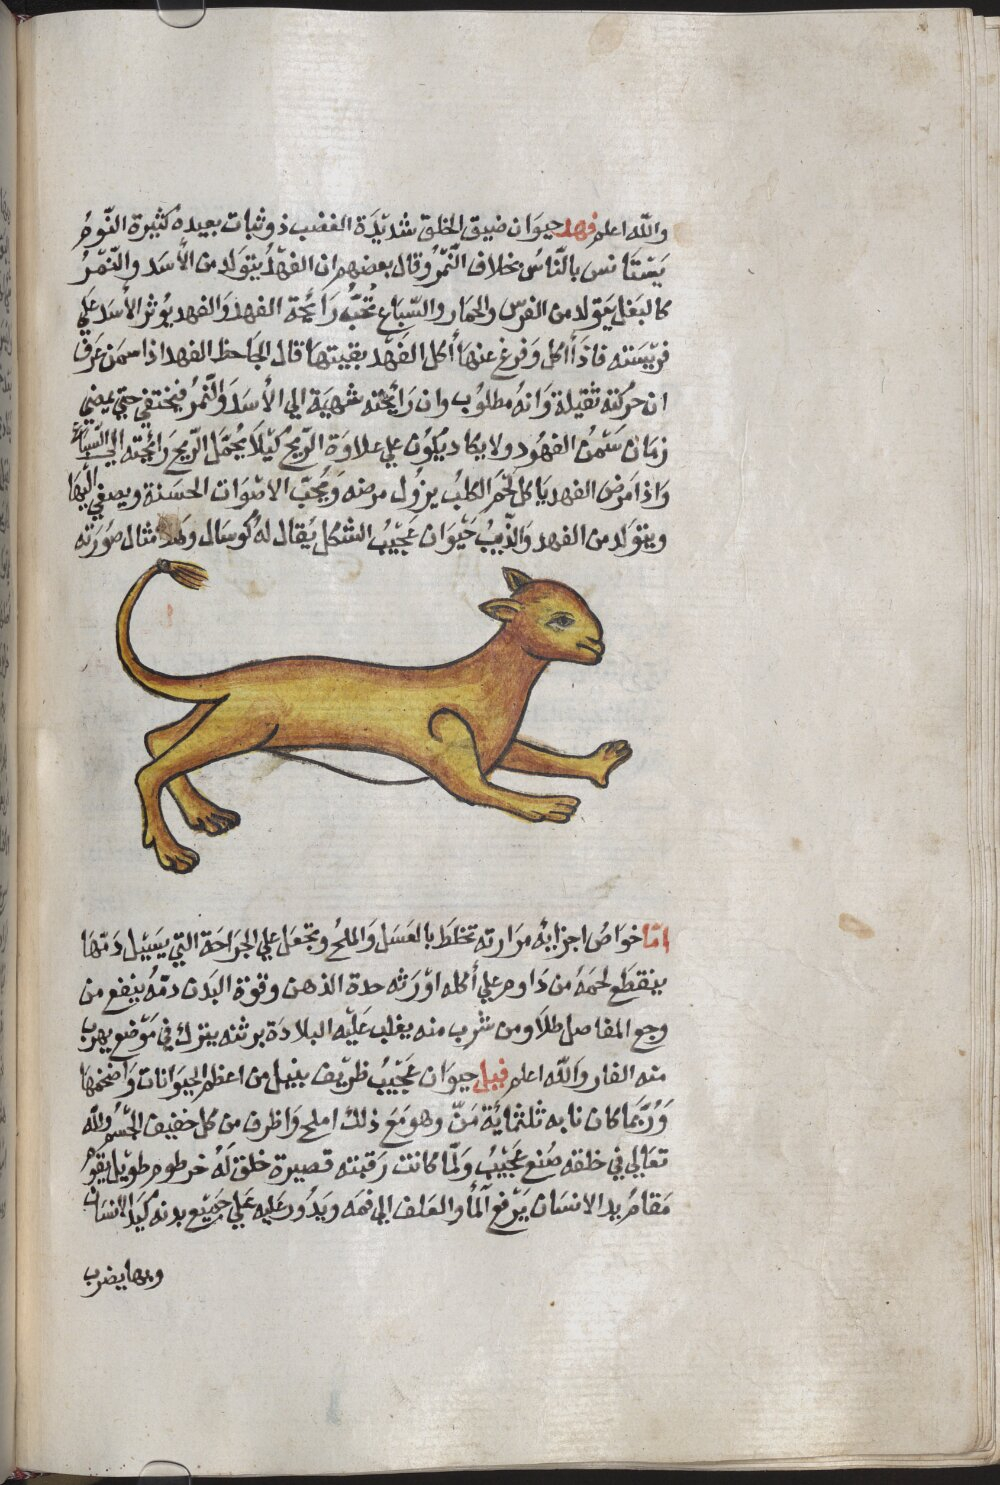 والله اعلم فهد حيوان ضيق الخلق شديدة الغضب ذو ثبات بعيده كثيرة النوم
يستانس بالناس بخلاف النمر وقال بعضهم ان الفهد يتولد من الأسد والنمر
كالبغل يتولد من الفرس والحمار والسباع تحب رائحة الفهد والفهد يوثر الأسد علي
فريسته فاذا اكل وفرغ عنها أكل الفهد بقيتها قال الجاحظ الفهد اذا سمن عرف
ان حركته ثقيلة وانه مطلوب وان رائحته شهية الي الأسد والنمر فيختفي حتي يمضي
زمان سمن الفهود ولا يكاد يكون علي علاوة الريح كيلا يحمل الريح رائحته الي السباع
واذا مرض الفهد ياكل لحم الكلب يزول مرضه ويحب الاصوات الحسنة ويصغي اليها
ويتولد من الفهد والذيب حيوان عجيب الشكل يقال له كوسال وهذا مثال صورته
اما خواص اجزايه مرارته تخلط بالعسل والملح وتجعل علي الجراحة التي يسيل دمها
ينقطع لحمه من داوم علي أكله اورثه حدة الذهن وقوة البدن دمه ينفع من
وجع المفاصل طلاً ومن شرب منه يغلب عليه البلادة برثنه يترك في موضع يهرب
منه الفار والله اعلم فيل حيوان عجيب ظريف بنيل من اعظم الحيوانات واضخمها
وربما كان نابه ثلثماية من وهو مع ذلك املح واظرف من كل خفيف الجسم والله
تعالي في خلقه صنع عجيب ولما كانت رقبته قصيرة خلق له خرطوم طويل يقوم
مقام يد الانسان يرفع الما والعلف الي فمه ويدور عليه علي جميع بدنه كيد الانسان
وبها يضرب